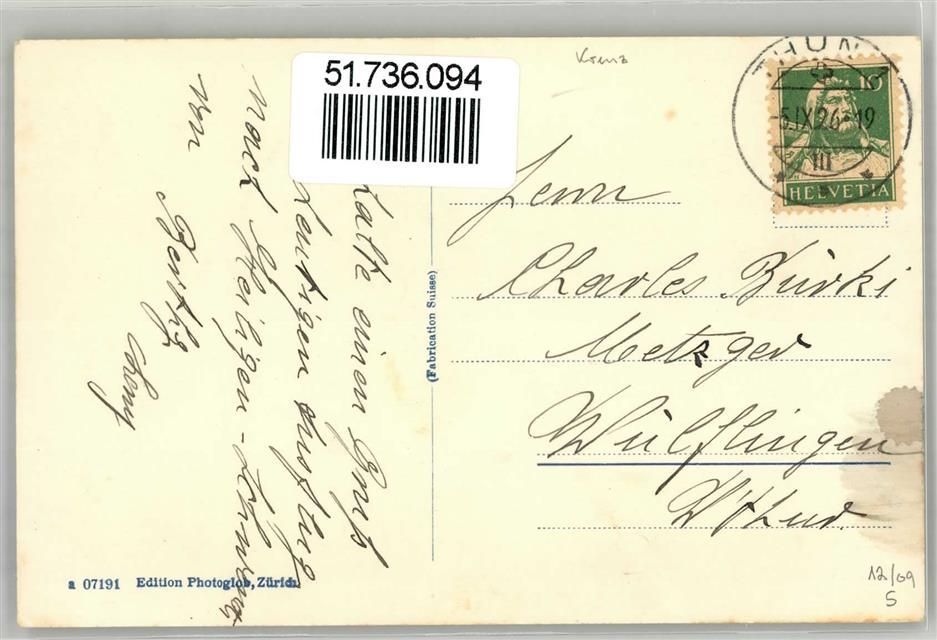 51.736.094
Kreuz
THUN
-5.IX.26-19
III
10
HELVETIA
Herrn
Charles Bürki
Metzger
Wülflingen
W'thur.
einen Gruß
heutigen Ausflug
nach
von
Bertha
(Fabrication Suisse)
a 07191 Edition Photoglob, Zürich.
12/09
S